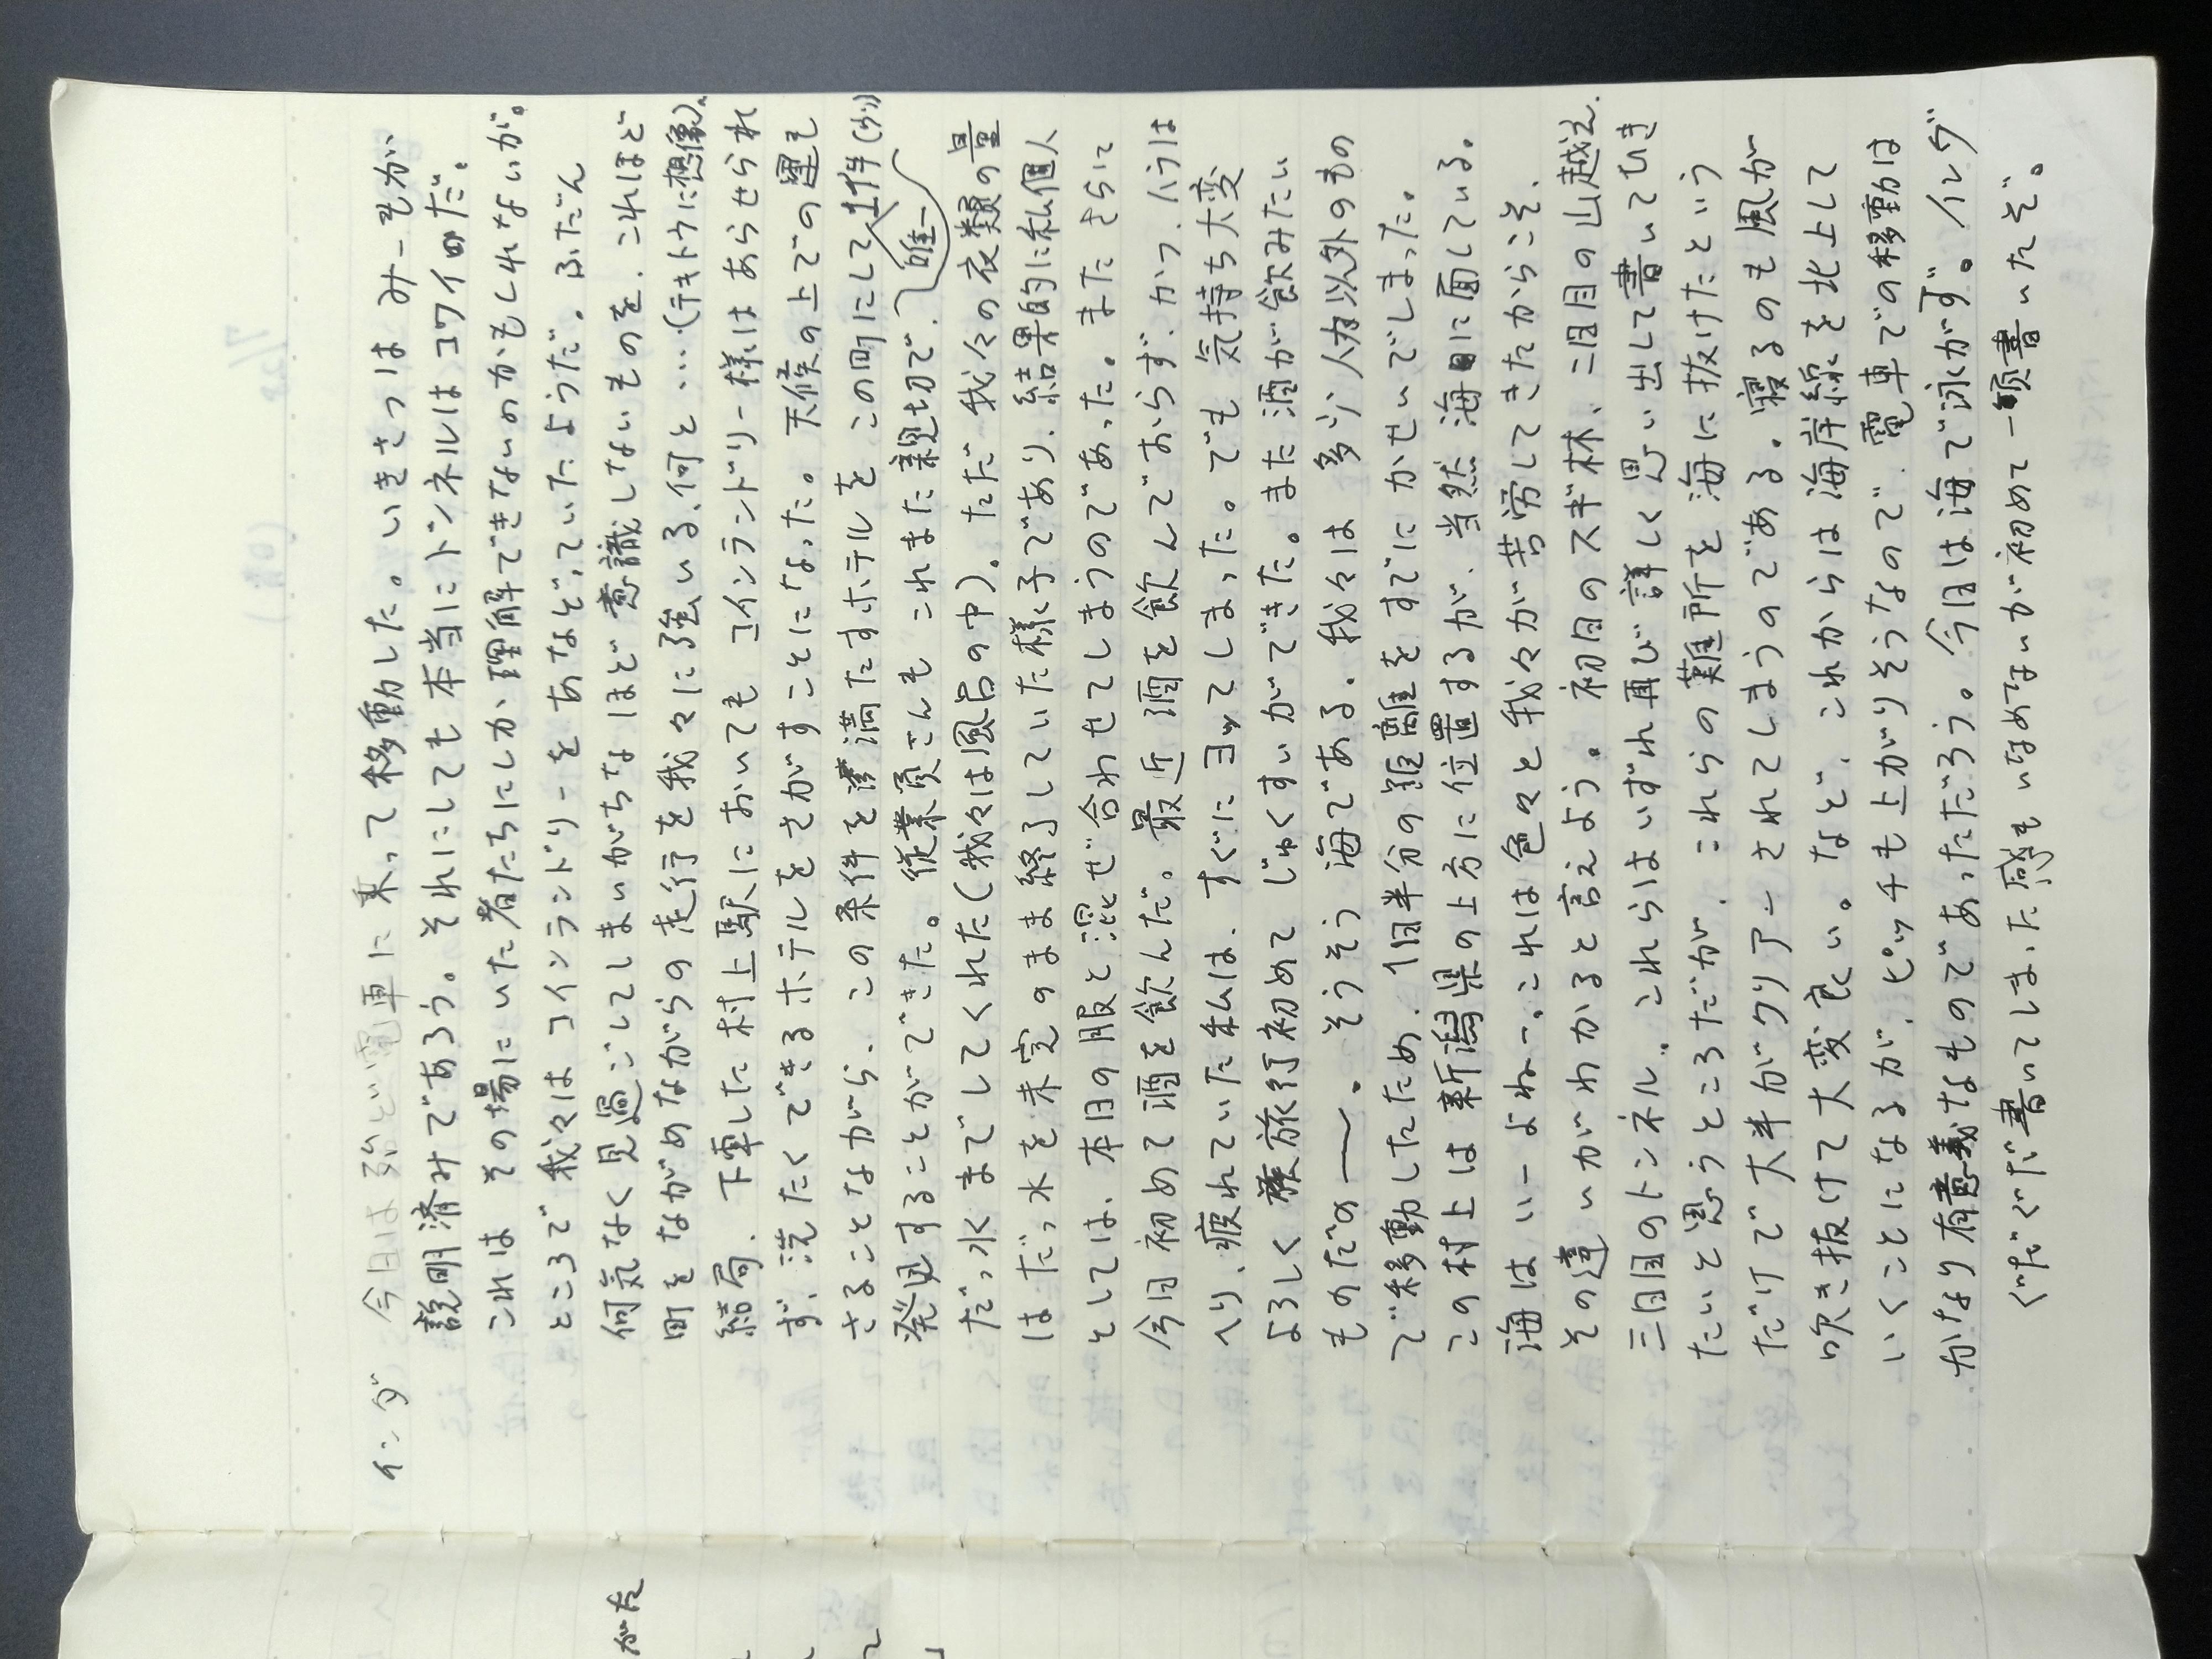 インダ 今日は殆ど電車に乗って移動した。いきさつはみーもが
説明済みであろう。それにしても本当にトンネルはコワイのだ。
これは その場にいた者たちにしか、理解できないのかもしれないが。
ところで 我々は コインランドリーを あなどっていたようだ。ふだん
何気なく見過ごしてしまいがちなほど 意識しないものを、これほど
町をながめながらの走行を我々に強いる、何と…(テキトウに想像)。
結局、下車した村上駅においても コインランドリー様は あらせられ
ず、洗たくできるホテルをさがすことになった。天候の上での運も
さることながら、この条件を満たすホテルを この町にして1件(少)
唯一
発見することができた。従業員さんも これまた親切で、
だっ水までしてくれた(我々は風呂の中)。ただ 我々の衣類の量
は だっ水を未完のまま終了していた様子であり、結果的に私個人
としては、本日の服と混ぜ合わせてしまうのであった。またさらに
今日初めて酒を飲んだ。最近 酒を飲んでおらず、かつ、ハラは
へり、疲れていた私は、すぐにヨッてしまった。でも 気持ち大変
よろしく 旅行初めて じゅくすいができた。また酒が飲みたい
ものだの――。そうそう 海である。我々は 多少 人力以外のもの
で移動したため、1日半分の距離をすでにかせいでしまった。
この村上は新潟県の上方に位置するが、当然 海に面している。
海はいーよねー。これは色々と我々が苦労してきたからこそ、
その違いがわかると言えよう。初日のスギ林、二日目の山越え、
三日目のトンネル。これらはいずれ再び詳しく思い出して書いていき
たいと思うところだが、これらの難所を海に抜けたという
だけで大半がクリアーされてしまうのである。寝るのも風が
吹き抜けて大変良い。など、これからは海岸線を北上して
いくことになるが、ピッチも上がりそうなので、電車での移動は
かなり有意義なものであっただろう。今日は海で泳がず。イルグ
ぐだぐだ書いてしまった感もいなめないが初めて一頁書いたぞ。
がた